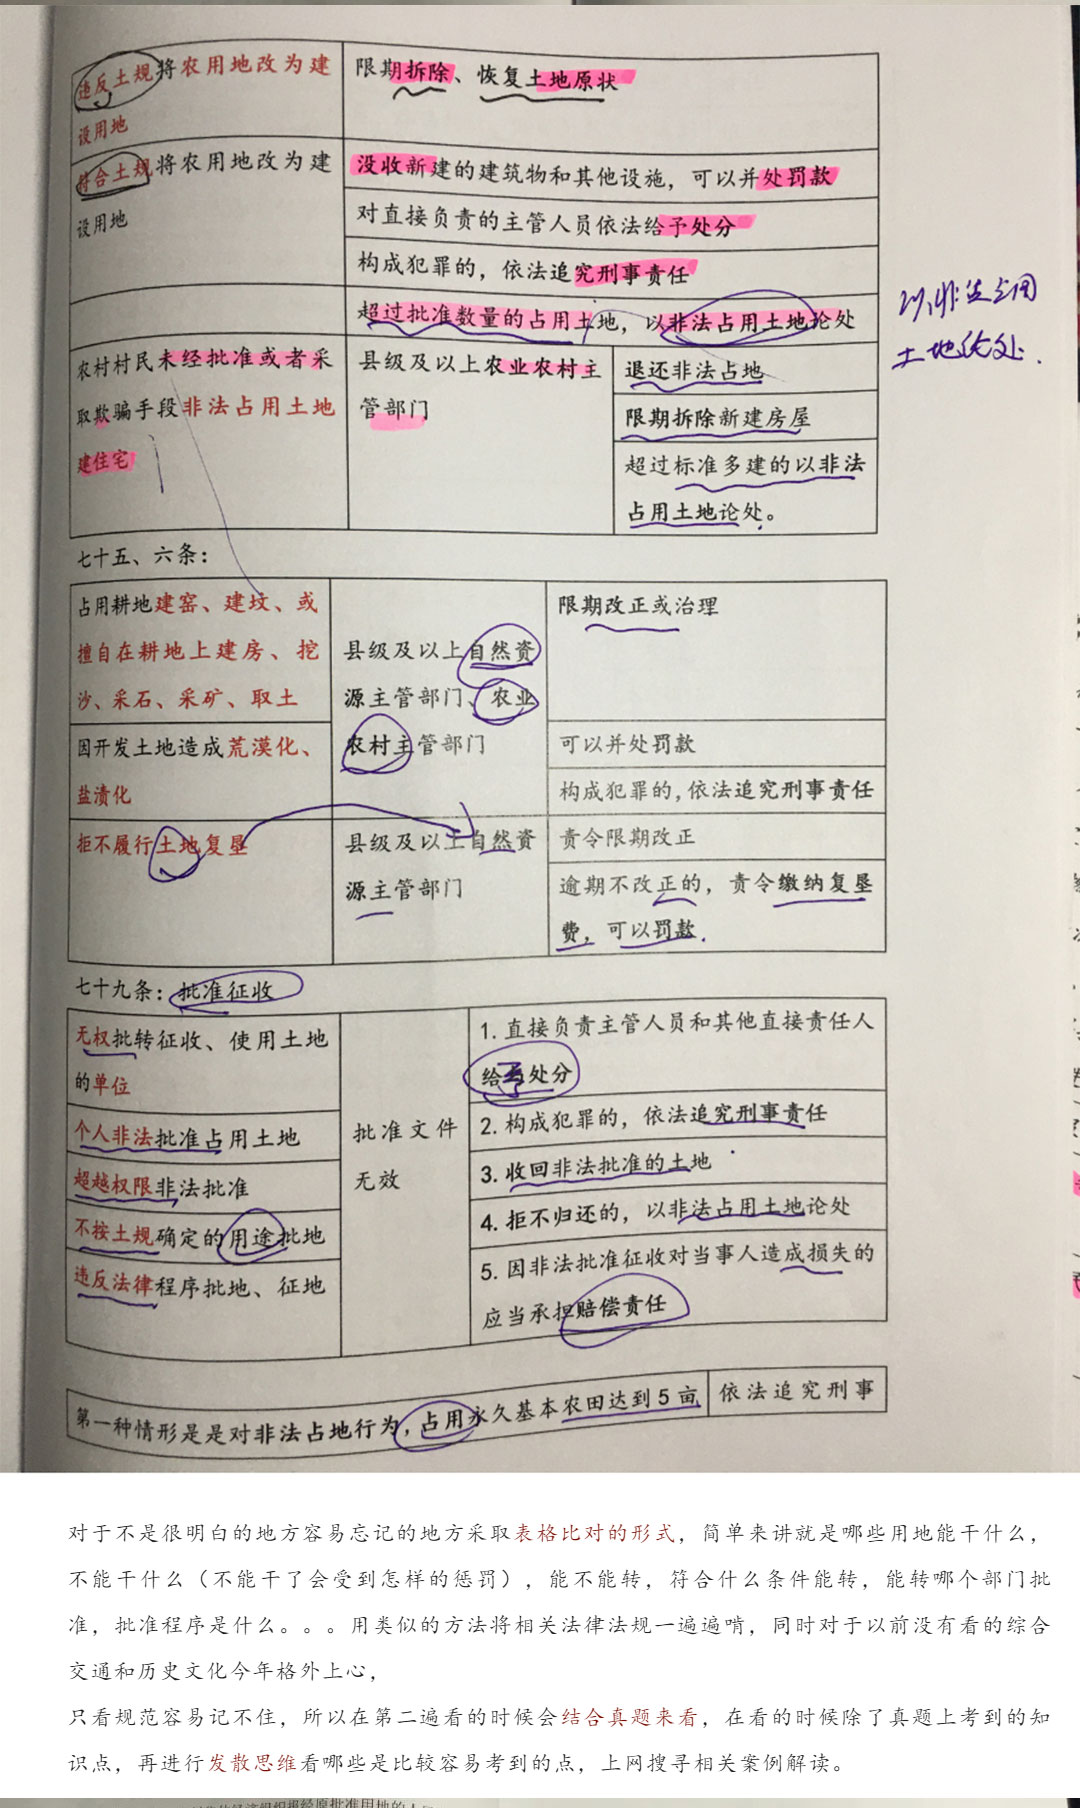 违反土规将农用地改为建
设用地
限期拆除、恢复土地原状
符合土规将农用地改为建
设用地
没收新建的建筑物和其他设施，可以并处罚款
对直接负责的主管人员依法给予处分
构成犯罪的，依法追究刑事责任
超过批准数量的占用土地，以非法占用土地论处
以非法占用
土地论处.
农村村民未经批准或者采
取欺骗手段非法占用土地
建住宅
县级及以上农业农村主
管部门
退还非法占地
限期拆除新建房屋
超过标准多建的以非法
占用土地论处。
七十五、六条：
占用耕地建窑、建坟、或
擅自在耕地上建房、挖
沙、采石、采矿、取土
县级及以上自然资
源主管部门、农业
农村主管部门
限期改正或治理
因开发土地造成荒漠化、
盐渍化
可以并处罚款
构成犯罪的,依法追究刑事责任
拒不履行土地复垦
县级及以上自然资
源主管部门
责令限期改正
逾期不改正的，责令缴纳复垦
费，可以罚款.
七十九条：批准征收
无权批转征收、使用土地
的单位
个人非法批准占用土地
超越权限非法批准
不按土规确定的用途批地
违反法律程序批地、征地
批准文件
无效
1.直接负责主管人员和其他直接责任人
给予处分
2.构成犯罪的，依法追究刑事责任
3.收回非法批准的土地
4.拒不归还的，以非法占用土地论处
5.因非法批准征收对当事人造成损失的
应当承担赔偿责任
第一种情形是是对非法占地行为，占用永久基本农田达到5亩
依法追究刑事
对于不是很明白的地方容易忘记的地方采取表格比对的形式，简单来讲就是哪些用地能干什么，
不能干什么（不能干了会受到怎样的惩罚），能不能转，符合什么条件能转，能转哪个部门批
准，批准程序是什么。。。用类似的方法将相关法律法规一遍遍啃，同时对于以前没有看的综合
交通和历史文化今年格外上心，
只看规范容易记不住，所以在第二遍看的时候会结合真题来看，在看的时候除了真题上考到的知
识点，再进行发散思维看哪些是比较容易考到的点，上网搜寻相关案例解读。